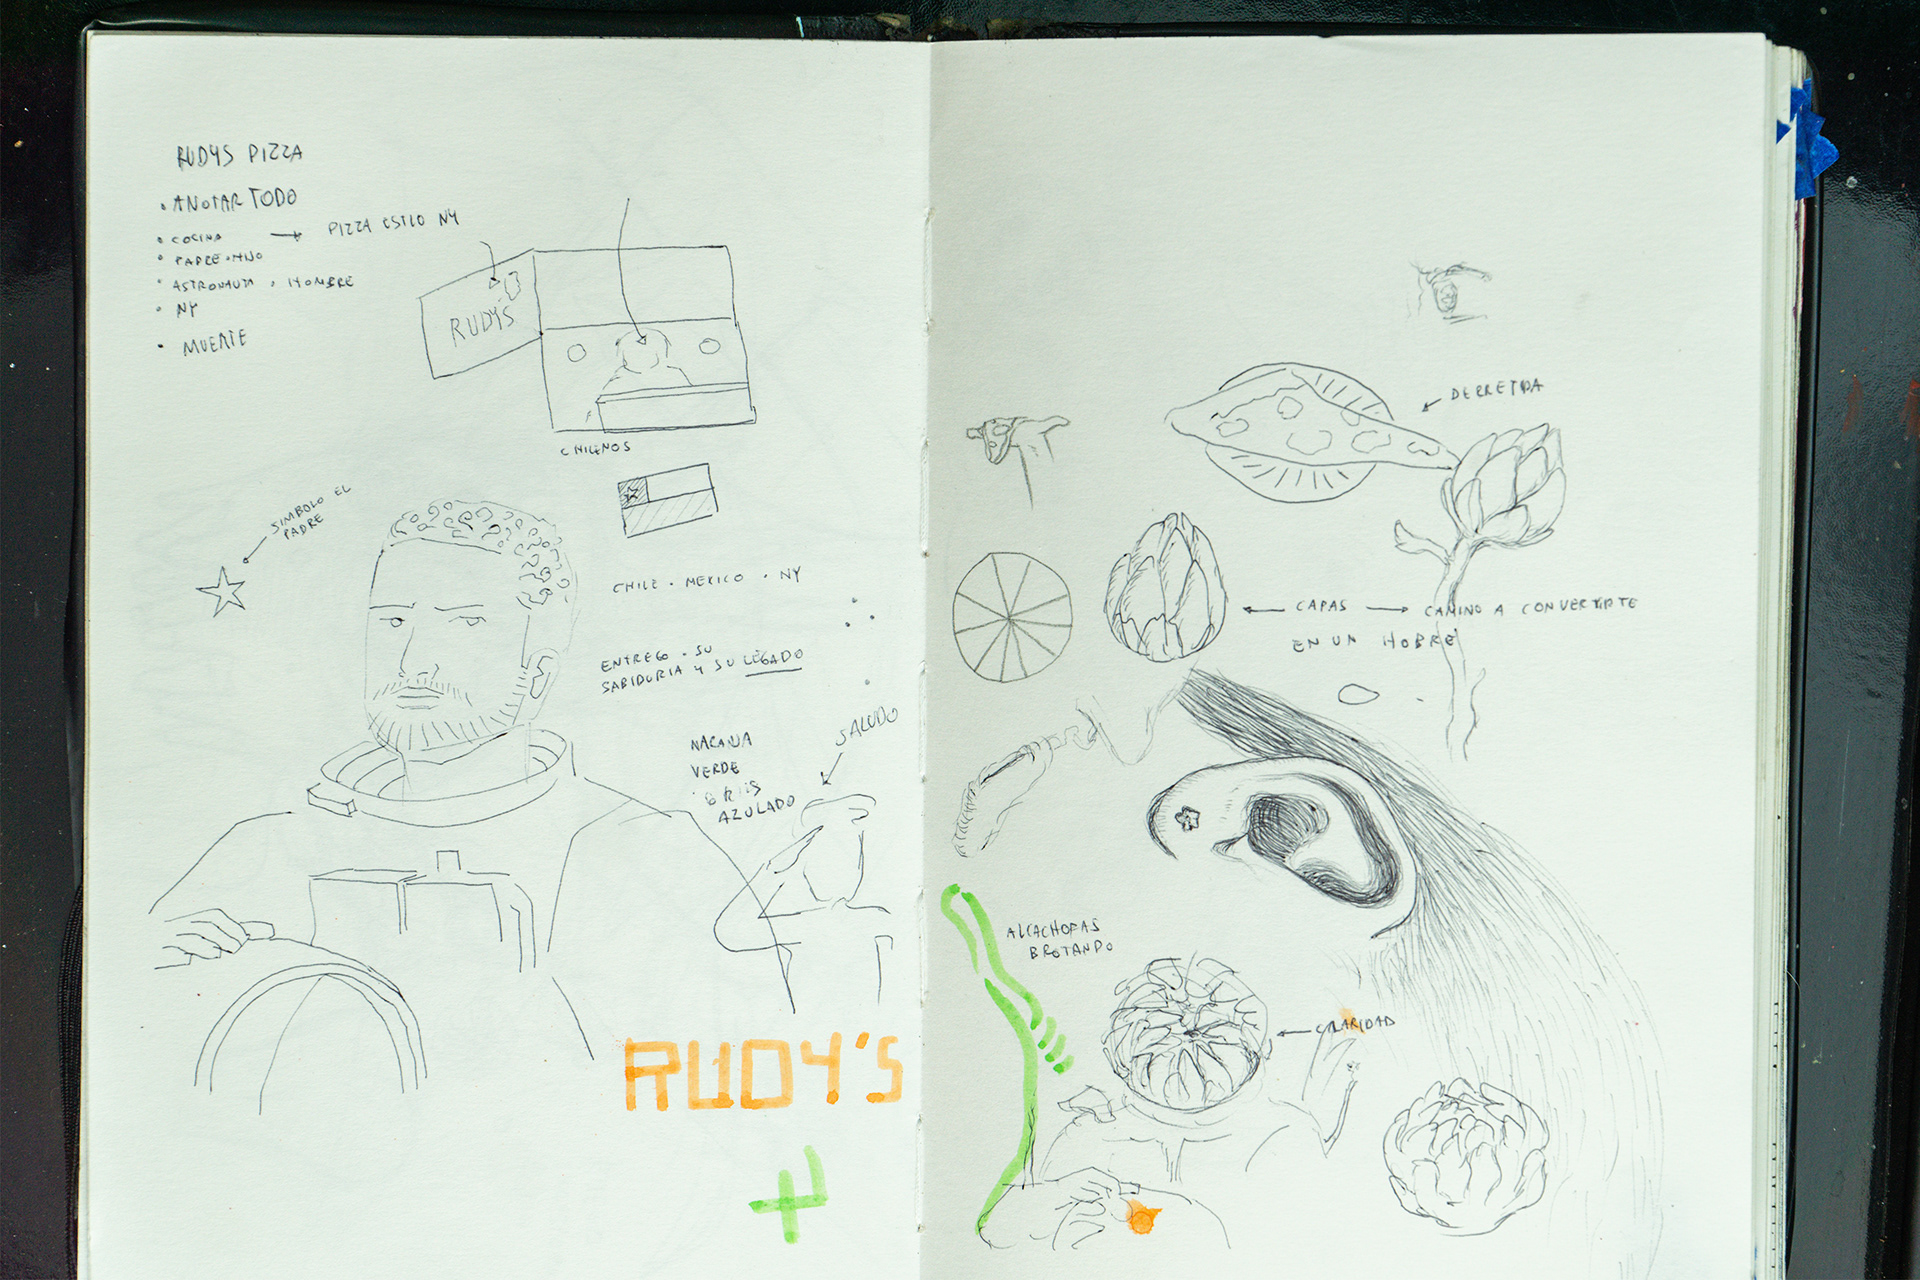 RUDYS PIZZA
• ANOTAR TODO
• COCINA → PIZZA ESTILO NY
• PADRE • HIJO
• ASTRONAUTA • HOMBRE
• NY
• MUERTE
RUDY'S
CHILENOS
SIMBOLO EL
PADRE
CHILE • MEXICO • NY
ENTREGO • SU
SABIDURIA Y SU LEGADO
NARANJA
VERDE
GRIS
AZULADO
SALUDO
RUDY'S
DERRETIDA
CAPAS → CAMINO A CONVERTIRTE
EN UN HOBRE
ALCACHOFAS
BROTANDO
CLARIDAD